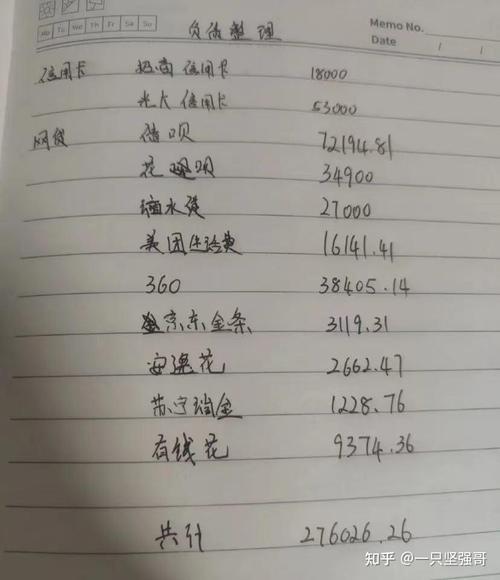 Memo No.
Mo Tu We Th Fr Sa Su
Date / /
负债整理
信用卡 招商信用卡 18000
光大信用卡 53000
网贷 借呗 72194.81
花呗 34900
滴水贷 27000
美团生活费 16141.41
360 38405.14
京东金条 3119.31
安逸花 2662.47
苏宁 1228.76
有钱花 9374.36
共计 276026.26
知乎 @一只坚强哥